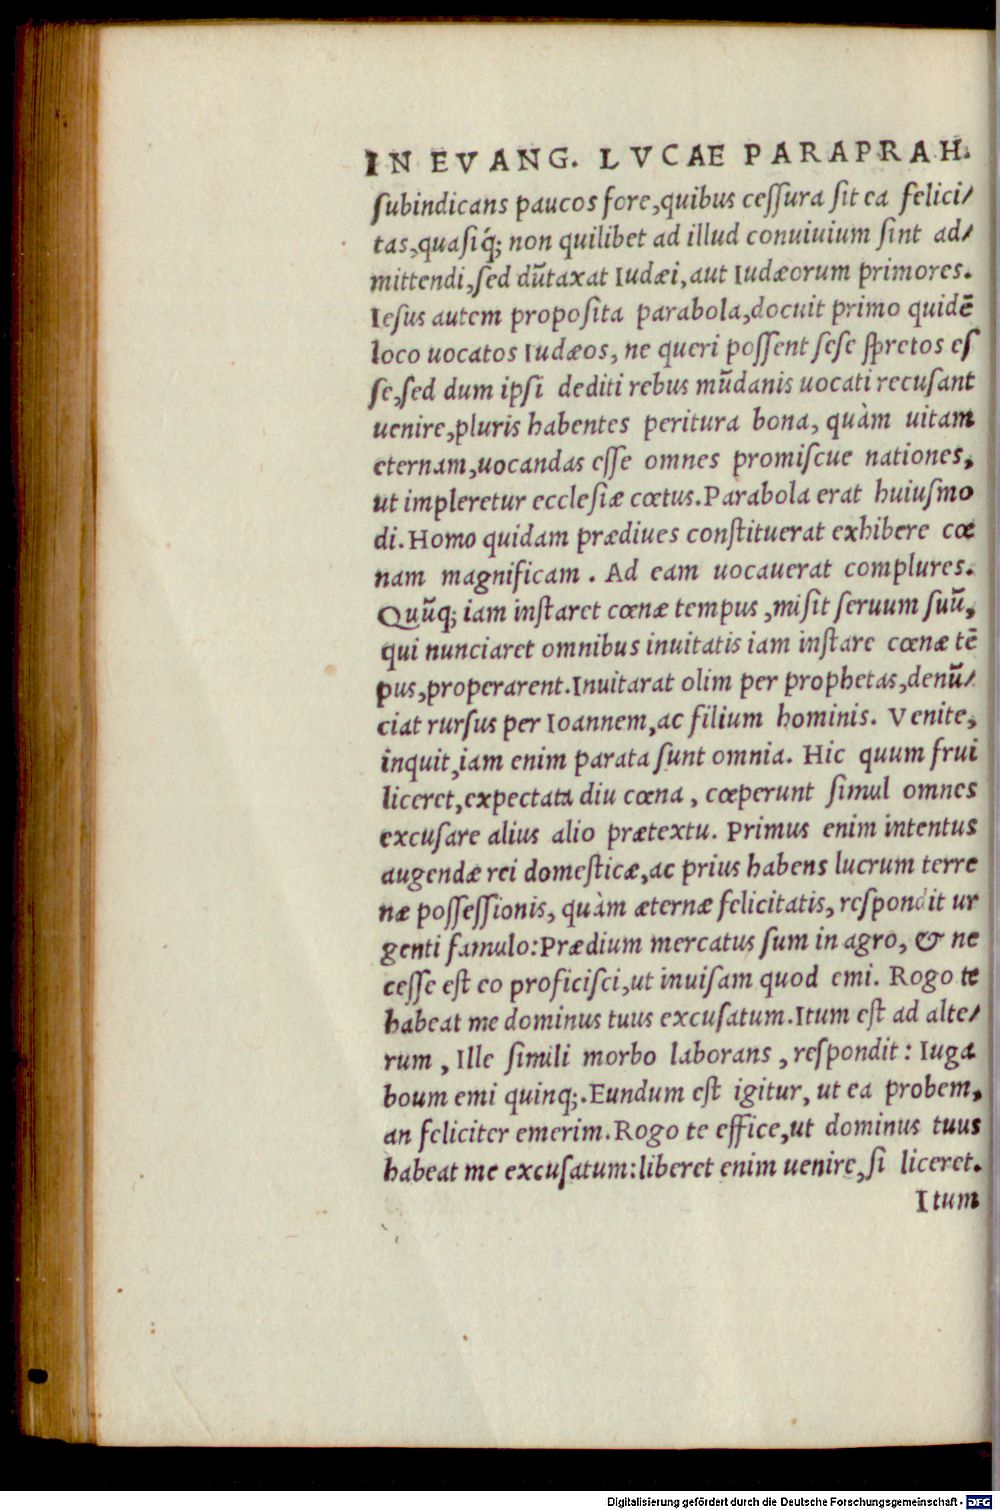 IN EVANG. LVCAE PARAPRAH.
ſubindicans paucos fore,quibus ceſſura ſit ea felici/
tas,quaſiq́; non quilibet ad illud conuiuium ſint ad/
mittendi,ſed dūtaxat Iudæi,aut Iudæorum primores.
Ieſus autem propoſita parabola,docuit primo quidē
loco uocatos Iudæos, ne queri poſſent ſeſe ſpretos eſ
ſe,ſed dum ipſi dediti rebus mūdanis uocati recuſant
uenire,pluris habentes peritura bona, quàm uitam
eternam,uocandas eſſe omnes promiſcue nationes,
ut impleretur eccleſiæ cœtus.Parabola erat huiuſmo
di.Homo quidam prædiues conſtituerat exhibere cœ
nam magnificam. Ad eam uocauerat complures.
Quūq; iam inſtaret cœnæ tempus,miſit ſeruum ſuū,
qui nunciaret omnibus inuitatis iam inſtare cœnæ tē
pus,properarent.Inuitarat olim per prophetas,denū/
ciat rurſus per Ioannem,ac filium hominis. Venite,
inquit,iam enim parata ſunt omnia. Hic quum frui
liceret,expectata diu cœna, cœperunt ſimul omnes
excuſare alius alio prætextu. Primus enim intentus
augendæ rei domeſticæ,ac prius habens lucrum terre
næ poſſeſſionis, quàm æternæ felicitatis, reſpondit ur
genti famulo:Prædium mercatus ſum in agro, & ne
ceſſe eſt eo proficiſci,ut inuiſam quod emi. Rogo te
habeat me dominus tuus excuſatum.Itum eſt ad alte/
rum, Ille ſimili morbo laborans, reſpondit: Iuga
boum emi quinq;.Eundum eſt igitur, ut ea probem,
an feliciter emerim.Rogo te effice,ut dominus tuus
habeat me excuſatum:liberet enim uenire,ſi liceret.
Itum
Digitalisierung gefördert durch die Deutsche Forschungsgemeinschaft - DFG